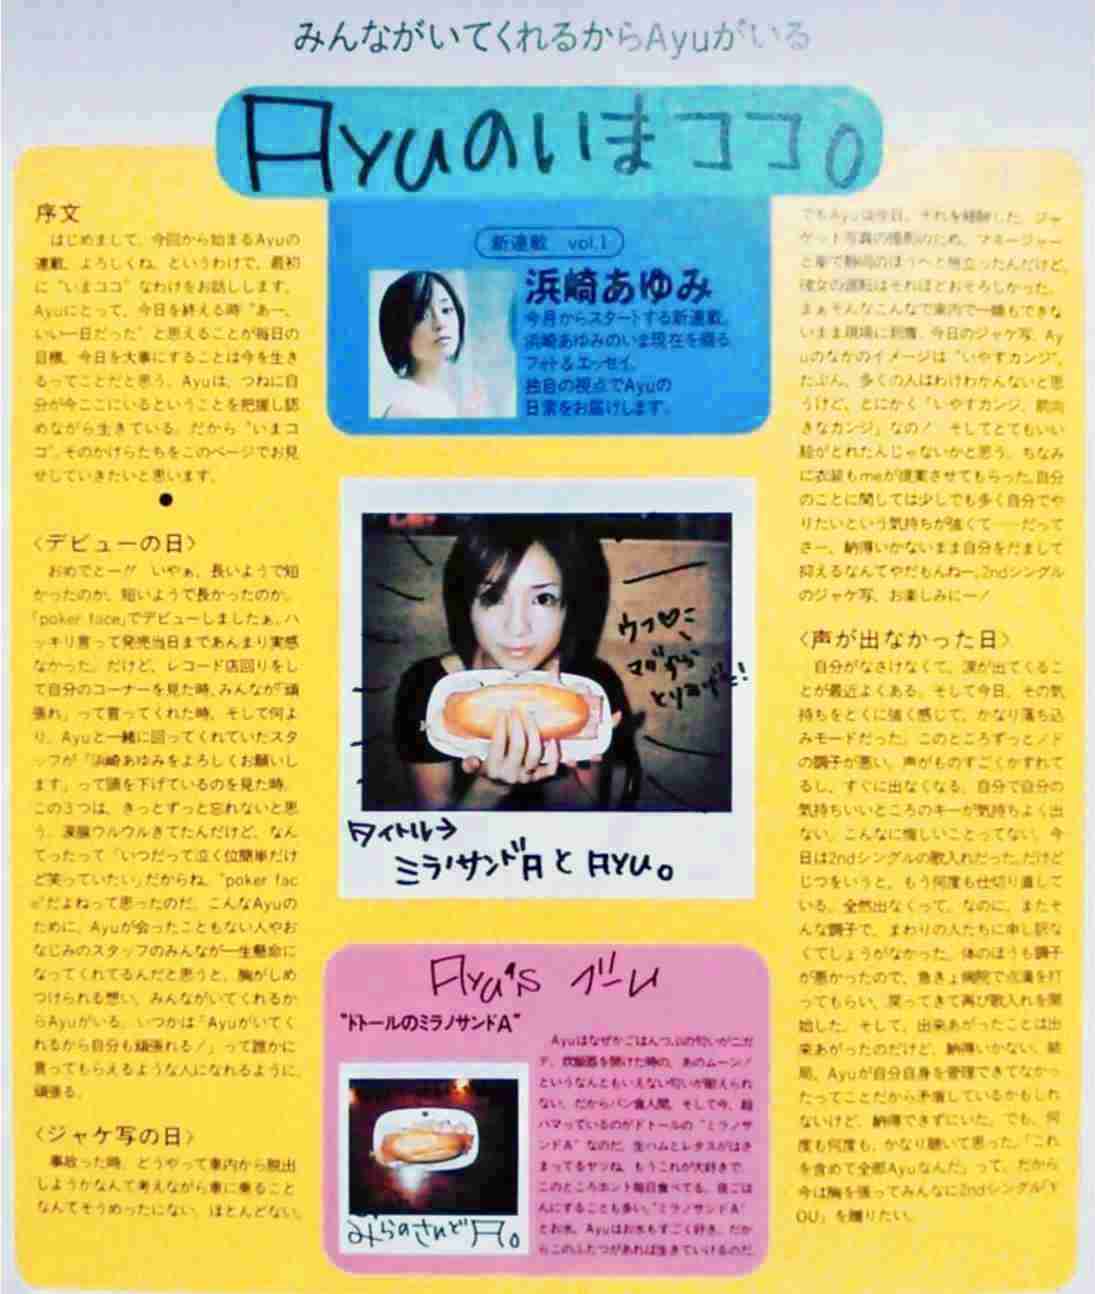 みんながいてくれるからAyuがいる
Ayuのいまココ。
新連載 vol.1
浜崎あゆみ
今月からスタートする新連載。
浜崎あゆみのいま現在を綴る
フォト&エッセイ。
独自の視点でAyuの
日常をお届けします。
序文
はじめまして、今回から始まるAyuの
連載、よろしくね。というわけで、最初
に“いまココ”なわけをお話しします。
Ayuにとって、今日を終える時“あー、
いい一日だった”と思えることが毎日の
目標。今日を大事にすることは今を生き
るってことだと思う。Ayuは、つねに自
分が今ここにいるということを把握し認
めながら生きている。だから“いまコ
コ”。そのかけらたちをこのページでお見
せしていきたいと思います。
●
〈デビューの日〉
おめでとー!! いやぁ、長いようで短
かったのか、短いようで長かったのか。
「poker face」でデビューしましたぁ。ハ
ッキリ言って発売当日まであんまり実感
なかった。だけど、レコード店回りをし
て自分のコーナーを見た時、みんなが「頑
張れ」って言ってくれた時、そして何よ
り、Ayuと一緒に回ってくれていたスタ
ッフが「浜崎あゆみをよろしくお願いし
ます」って頭を下げているのを見た時。
この3つは、きっとずっと忘れないと思
う。涙腺ウルウルきてたんだけど、なん
てったって「いつだって泣く位簡単だけ
ど笑っていたい」だからね。“poker fac
e”だよねって思ったのだ。こんなAyuの
ために、Ayuが会ったこともない人やお
なじみのスタッフのみんなが一生懸命に
なってくれてるんだと思うと、胸がしめ
つけられる想い。みんながいてくれるか
らAyuがいる。いつかは「Ayuがいてく
れるから自分も頑張れる!」って誰かに
言ってもらえるような人になれるように、
頑張る。
〈ジャケ写の日〉
事故った時、どうやって車内から脱出
しようかなんて考えながら車に乗ること
なんてそうめったにない。ほとんどない。
でもAyuは今日、それを経験した。ジャ
ケット写真の撮影のため、マネージャー
と車で静岡のほうへと旅立ったんだけど、
彼女の運転はそれほどおそろしかった。
まぁそんなこんなで車内で一睡もできな
いまま現場に到着。今日のジャケ写、Ay
uのなかのイメージは“いやすカンジ”。
たぶん、多くの人はわけわかんないと思
うけど、とにかく「いやすカンジ、前向
きなカンジ」なの! そしてとてもいい
絵がとれたんじゃないかと思う。ちなみ
に衣装もmeが提案させてもらった。自分
のことに関しては少しでも多く自分でや
りたいという気持ちが強くて……だって
さー、納得いかないまま自分をだまして
抑えるなんてやだもんねー。2ndシングル
のジャケ写、お楽しみにー!
〈声が出なかった日〉
自分がなさけなくて、涙が出てくるこ
とが最近よくある。そして今日、その気
持ちをとくに強く感じて、かなり落ち込
みモードだった。このところずっとノド
の調子が悪い。声がものすごくかすれて
るし、すぐに出なくなる。自分で自分の
気持ちいいところのキーが気持ちよく出
ない。こんなに悔しいことってない。今
日は2ndシングルの歌入れだった。だけど
じつをいうと、もう何度も仕切り直して
いる。全然出なくって。なのに、またそ
んな調子で、まわりの人たちに申し訳な
くてしょうがなかった。体のほうも調子
が悪かったので、急きょ病院で点滴を打
ってもらい、戻ってきて再び歌入れを開
始した。そして、出来あがったことは出
来あがったのだけど、納得いかない。結
局、Ayuが自分自身を管理できてなかっ
たってことだから矛盾しているかもしれ
ないけど、納得できずにいた。でも、何
度も何度も、かなり聴いて思った。「これ
を含めて全部Ayuなんだ」って。だから
今は胸を張ってみんなに2ndシングル「Y
OU」を贈りたい。
ウフ♡
タイトル→
ミラノサンドAとAyu。
Ayu's ブーム
“ドトールのミラノサンドA”
Ayuはなぜかごはんつぶの匂いがニガ
テ。炊飯器を開けた時の、あのムーン!
というなんともいえない匂いが耐えられ
ない。だからパン食人間。そして今、超
ハマっているのがドトールの“ミラノサ
ンドA”なのだ。生ハムとレタスがはさ
まってるヤツね。もうこれが大好きで、
このところホント毎日食べてる。夜ごは
んにすることも多い。“ミラノサンドA”
とお水。Ayuはお水もすごく好き。だか
らこのふたつがあれば生きていけるのだ。
みらのさんどA。